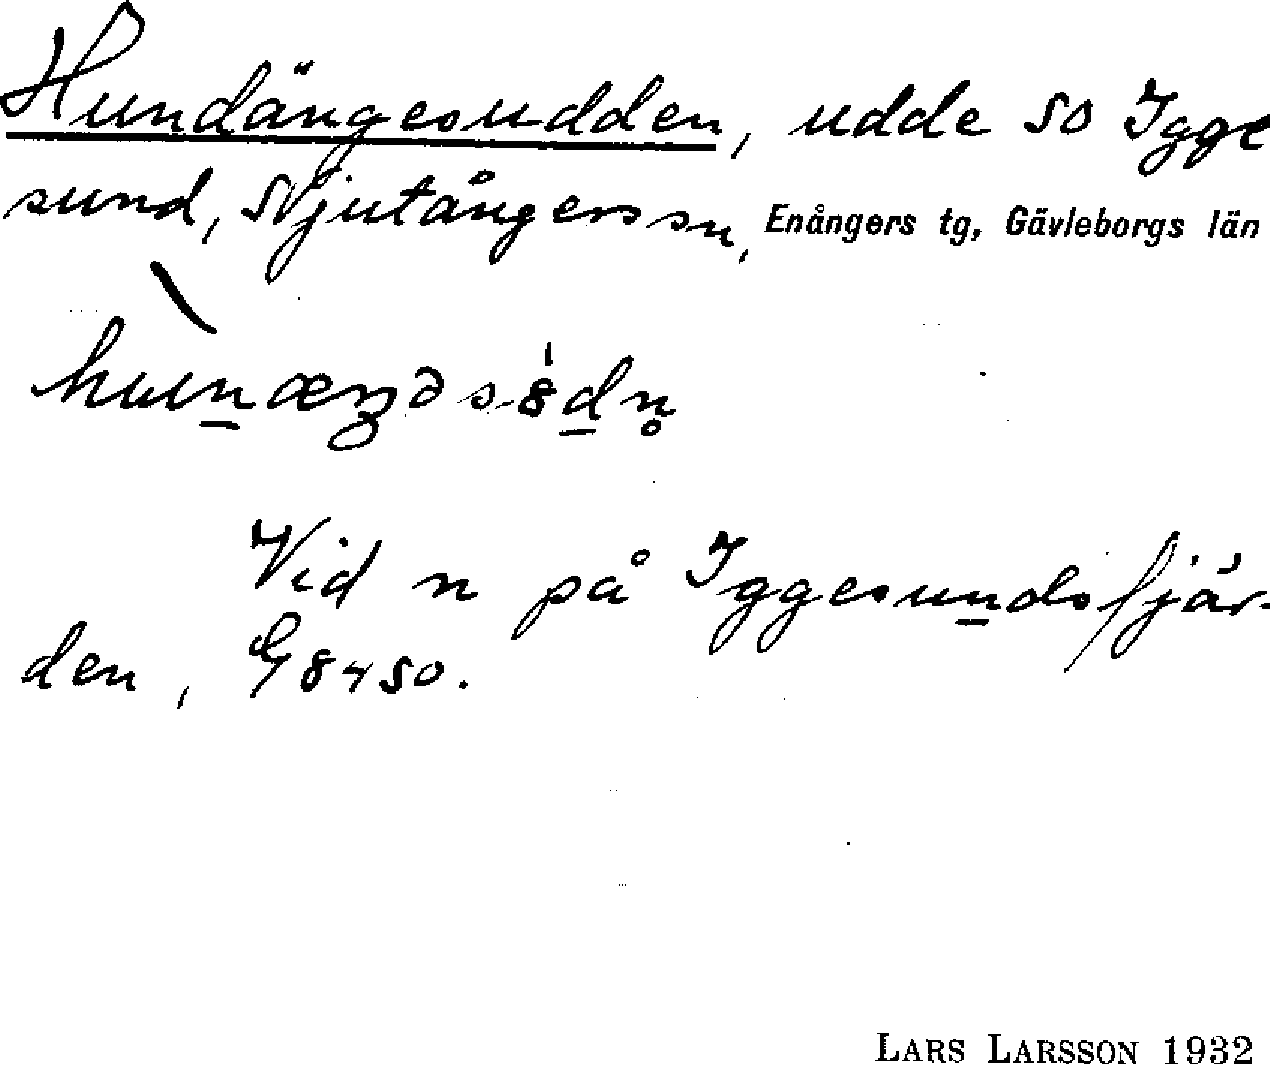 Hundängesudden, udde SO Igge
sund, Njutångers sn, Enångers tg, Gävleborgs län
Vid n på Iggesundsfjär-
den, G 8450.
LARS LARSSON 1932